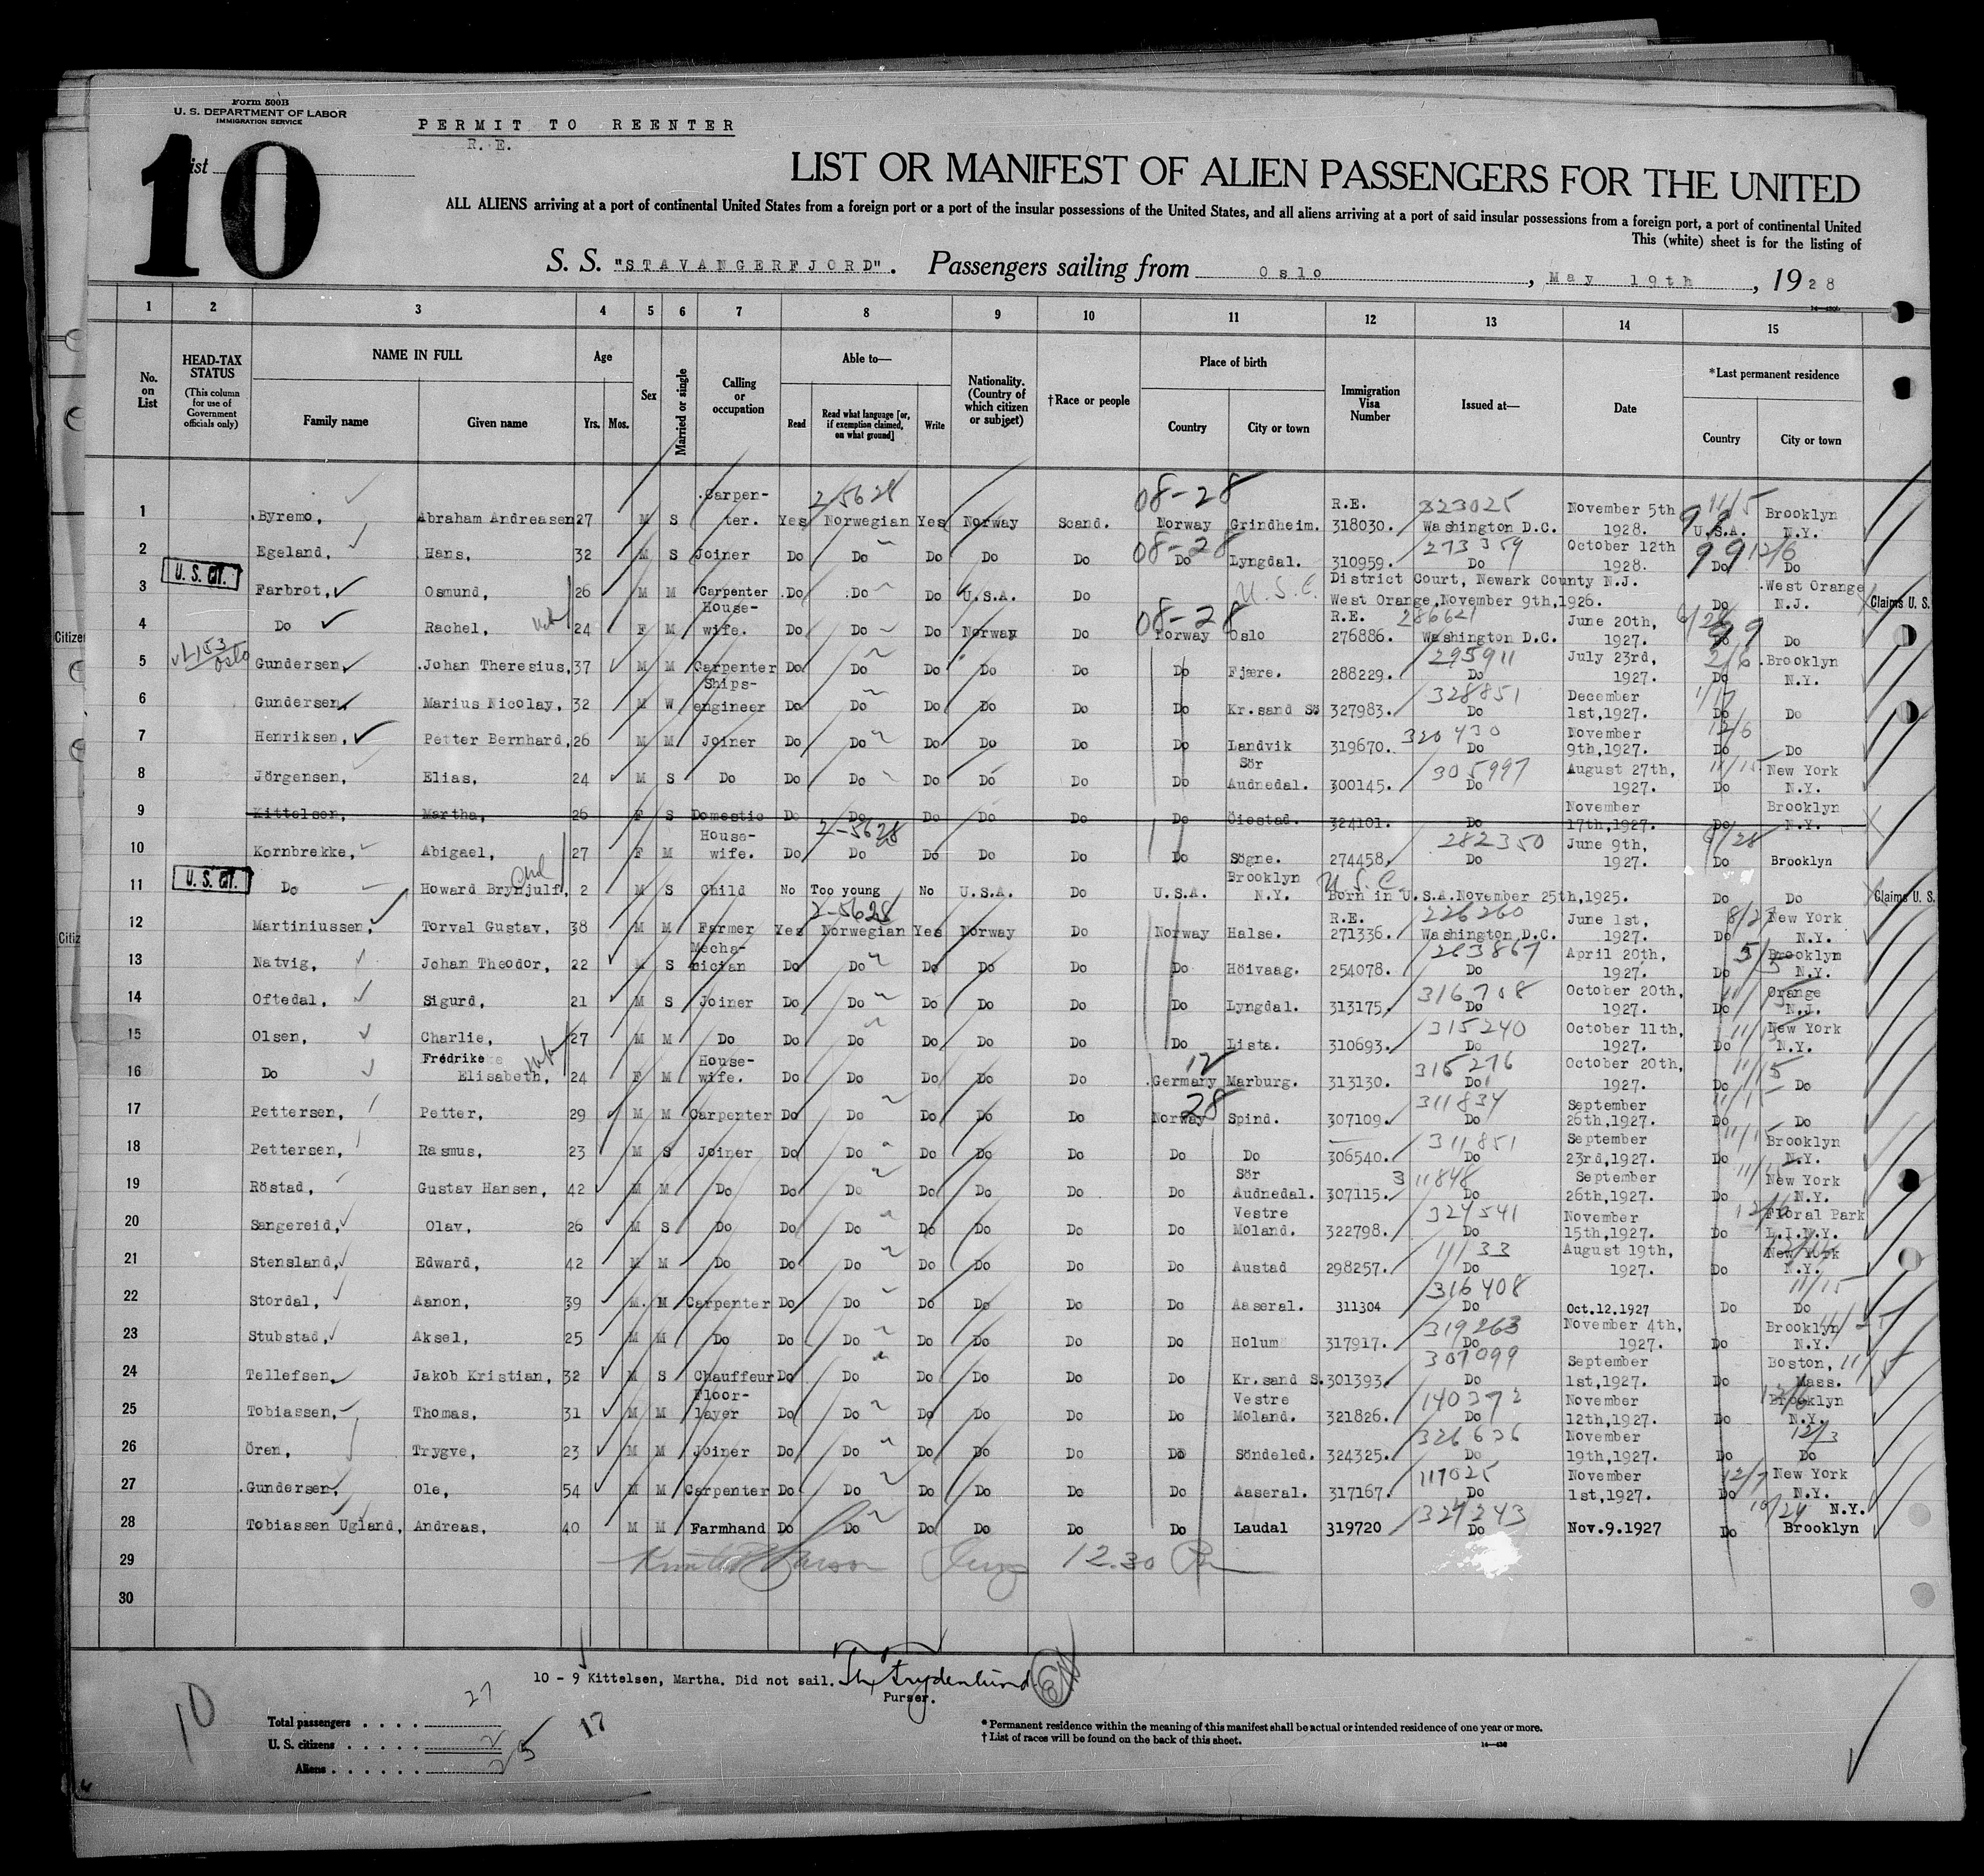 Form 500B
U. S. DEPARTMENT OF LABOR
IMMIGRATION SERVICE
PERMIT TO REENTER
R. E.
10
LIST OR MANIFEST OF ALIEN PASSENGERS FOR THE UNITED
ALL ALIENS arriving at a port of continental United States from a foreign port or a port of the insular possessions of the United States, and all aliens arriving at a port of said insular possessions from a foreign port, a port of continental United
This (white) sheet is for the listing of
S. S. "STAVANGERFJORD". Passengers sailing from Oslo, May 19th, 1928
1 2 3 4 5 6 7 8 9 10 11 12 13 14 15
No. on List
HEAD-TAX STATUS (This column for use of Government officials only)
NAME IN FULL Family name Given name
Age Yrs. Mos.
Sex
Married or single
Calling or occupation
Able to— Read Read what language [or, if exemption claimed, on what ground] Write
Nationality. (Country of which citizen or subject)
†Race or people
Place of birth Country City or town
Immigration Visa Number
Issued at—
Date
*Last permanent residence Country City or town
2-5628 08-28 323025 11/15
1 Byremo, Abraham Andreasen 27 M S Carpen-ter. Yes Norwegian Yes Norway Scand. Norway Grindheim. R.E. 318030. Washington D.C. November 5th 1928. U.S.A. Brooklyn N.Y.
08-28 273359 99 12/6
2 Egeland, Hans, 32 M S Joiner Do Do Do Do Do Do Lyngdal. 310959. Do October 12th 1928. Do Do
U. S. CIT.
3 Farbrot, Osmund, 26 M M Carpenter Do Do Do U.S.A. Do U.S.C. District Court, Newark County N.J. West Orange, November 9th, 1926. Do West Orange N.J. Claims U. S.
08-28 286621
4 Do Rachel, 24 F M House-wife. Do Do Do Norway Do Norway Oslo R.E. 276886. Washington D.C. June 20th, 1927. Do Do
295911 2/6
5 Gundersen, Johan Theresius, 37 M M Carpenter Do Do Do Do Do Do Fjære. 288229. Do July 23rd, 1927. Do Brooklyn N.Y.
328851 1/17
6 Gundersen, Marius Nicolay, 32 M W Ships-engineer Do Do Do Do Do Do Kr.sand Sö 327983. Do December 1st,1927. Do Do
320430 12/6
7 Henriksen, Petter Bernhard, 26 M M Joiner Do Do Do Do Do Do Landvik 319670. Do November 9th,1927. Do Do
305997 11/15
8 Jörgensen, Elias, 24 M S Do Do Do Do Do Do Do Sör Audnedal. 300145. Do August 27th, 1927. Do New York N.Y.
9 Kittelsen, Martha, 26 F S Domestic Do Do Do Do Do Do Öiestad. 324101. Do November 17th,1927. Do Brooklyn N.Y.
2-5628 282350
10 Kornbrekke, Abigael, 27 F M House-wife. Do Do Do Do Do Do Sögne. 274458. Do June 9th, 1927. Do Brooklyn
U. S. CIT.
11 Do Howard Brynjulf, 2 M S Child No Too young No U.S.A. Do U.S.A. Brooklyn N.Y. U.S.C. Born in U.S.A. November 25th,1925. Do Do Claims U. S.
2-5628 226260
12 Martiniussen, Torval Gustav, 38 M M Farmer Yes Norwegian Yes Norway Do Norway Halse. R.E. 271336. Washington D.C. June 1st, 1927. Do New York N.Y.
263867
13 Natvig, Johan Theodor, 22 M S Mecha-nician Do Do Do Do Do Do Höivaag. 254078. Do April 20th, 1927. Do Brooklyn N.Y.
316708
14 Oftedal, Sigurd, 21 M S Joiner Do Do Do Do Do Do Lyngdal. 313175. Do October 20th, 1927. Do Orange N.J.
315240
15 Olsen, Charlie, 27 M M Do Do Do Do Do Do Do Lista. 310693. Do October 11th, 1927. Do New York N.Y.
12 315276 11/15
16 Do Fredrikke Elisabeth, 24 F M House-wife. Do Do Do Do Do Germany Marburg. 313130. Do October 20th, 1927. Do Do
28 311834
17 Pettersen, Petter, 29 M M Carpenter Do Do Do Do Do Norway Spind. 307109. Do September 26th,1927. Do Do
311851
18 Pettersen, Rasmus, 23 M S Joiner Do Do Do Do Do Do Do 306540. Do September 23rd,1927. Do Brooklyn N.Y.
311848
19 Röstad, Gustav Hansen, 42 M M Do Do Do Do Do Do Do Sör Audnedal. 307115. Do September 26th,1927. Do New York N.Y.
324541
20 Sangereid, Olav, 26 M S Do Do Do Do Do Do Do Vestre Moland. 322798. Do November 15th,1927. Do Floral Park L.I.N.Y.
21 Stensland, Edward, 42 M M Do Do Do Do Do Do Do Austad 298257. Do August 19th, 1927. Do New York N.Y.
316408 11/15
22 Stordal, Aanon, 39 M. M Carpenter Do Do Do Do Do Do Aaseral. 311304 Do Oct.12.1927 Do Do
319263
23 Stubstad, Aksel, 25 M M Do Do Do Do Do Do Do Holum 317917. Do November 4th, 1927. Do Brooklyn N.Y.
307099
24 Tellefsen, Jakob Kristian, 32 M S Chauffeur Do Do Do Do Do Do Kr.sand S. 301393. Do September 1st,1927. Do Boston, Mass.
140372
25 Tobiassen, Thomas, 31 M M Floor-layer Do Do Do Do Do Do Vestre Moland. 321826. Do November 12th,1927. Do Brooklyn N.Y.
326636 12/3
26 Ören, Trygve, 23 M M Joiner Do Do Do Do Do Do Söndeled. 324325. Do November 19th,1927. Do Do
117025 12/7
27 Gundersen, Ole, 54 M M Carpenter Do Do Do Do Do Do Aaseral. 317167. Do November 1st,1927. Do New York N.Y.
10/24
28 Tobiassen Ugland, Andreas, 40 M M Farmhand Do Do Do Do Do Do Laudal 319720 Do Nov.9.1927 Do N.Y. Brooklyn
29 12.30
30
10 - 9 Kittelsen, Martha. Did not sail.
Purser.
10
Total passengers . . . . 27
17
U. S. citizens . . . . . 2
Aliens . . . . . . 25
* Permanent residence within the meaning of this manifest shall be actual or intended residence of one year or more.
† List of races will be found on the back of this sheet.